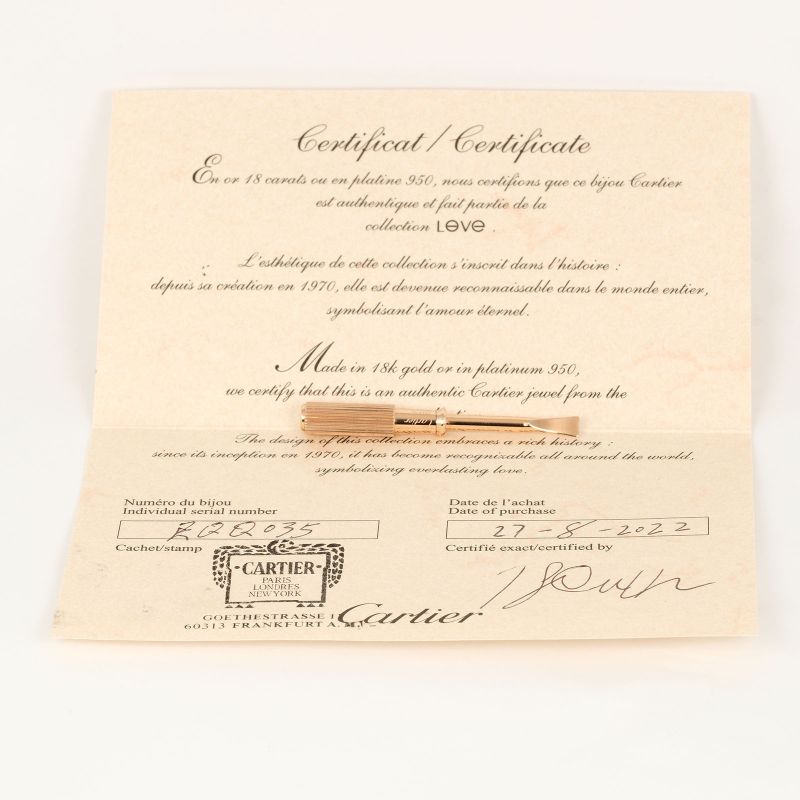 Certificat / Certificate
En or 18 carats ou en platine 950, nous certifions que ce bijou Cartier
est authentique et fait partie de la
collection LOVE .
L'esthétique de cette collection s'inscrit dans l'histoire :
depuis sa création en 1970, elle est devenue reconnaissable dans le monde entier,
symbolisant l'amour éternel.
Made in 18k gold or in platinum 950,
we certify that this is an authentic Cartier jewel from the
Cartier
The design of this collection embraces a rich history :
since its inception en 1970, it has become recognizable all around the world,
symbolizing everlasting love.
Numéro du bijou
Individual serial number
Date de l'achat
Date of purchase
EQQ035
27-8-2022
Cachet/stamp
Certifié exact/certified by
CARTIER
PARIS
LONDRES
NEW YORK
GOETHESTRASSE
60313 FRANKFURT A. M.
Cartier